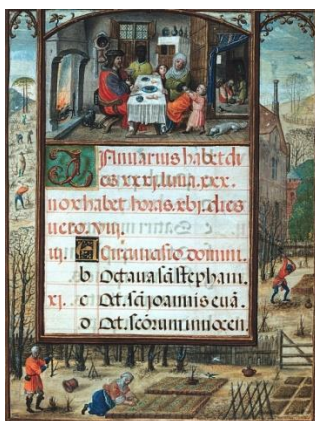 IAnuarius habet di
es xxxj. luna .xxx.
nox habet horas .xvj. dies
uero .viij.
iij. A Circuncisio domini.
b Octaua sãi stephani.
xj. c Oct. sãi ioannis euã.
d Oct. scõrum innocen.